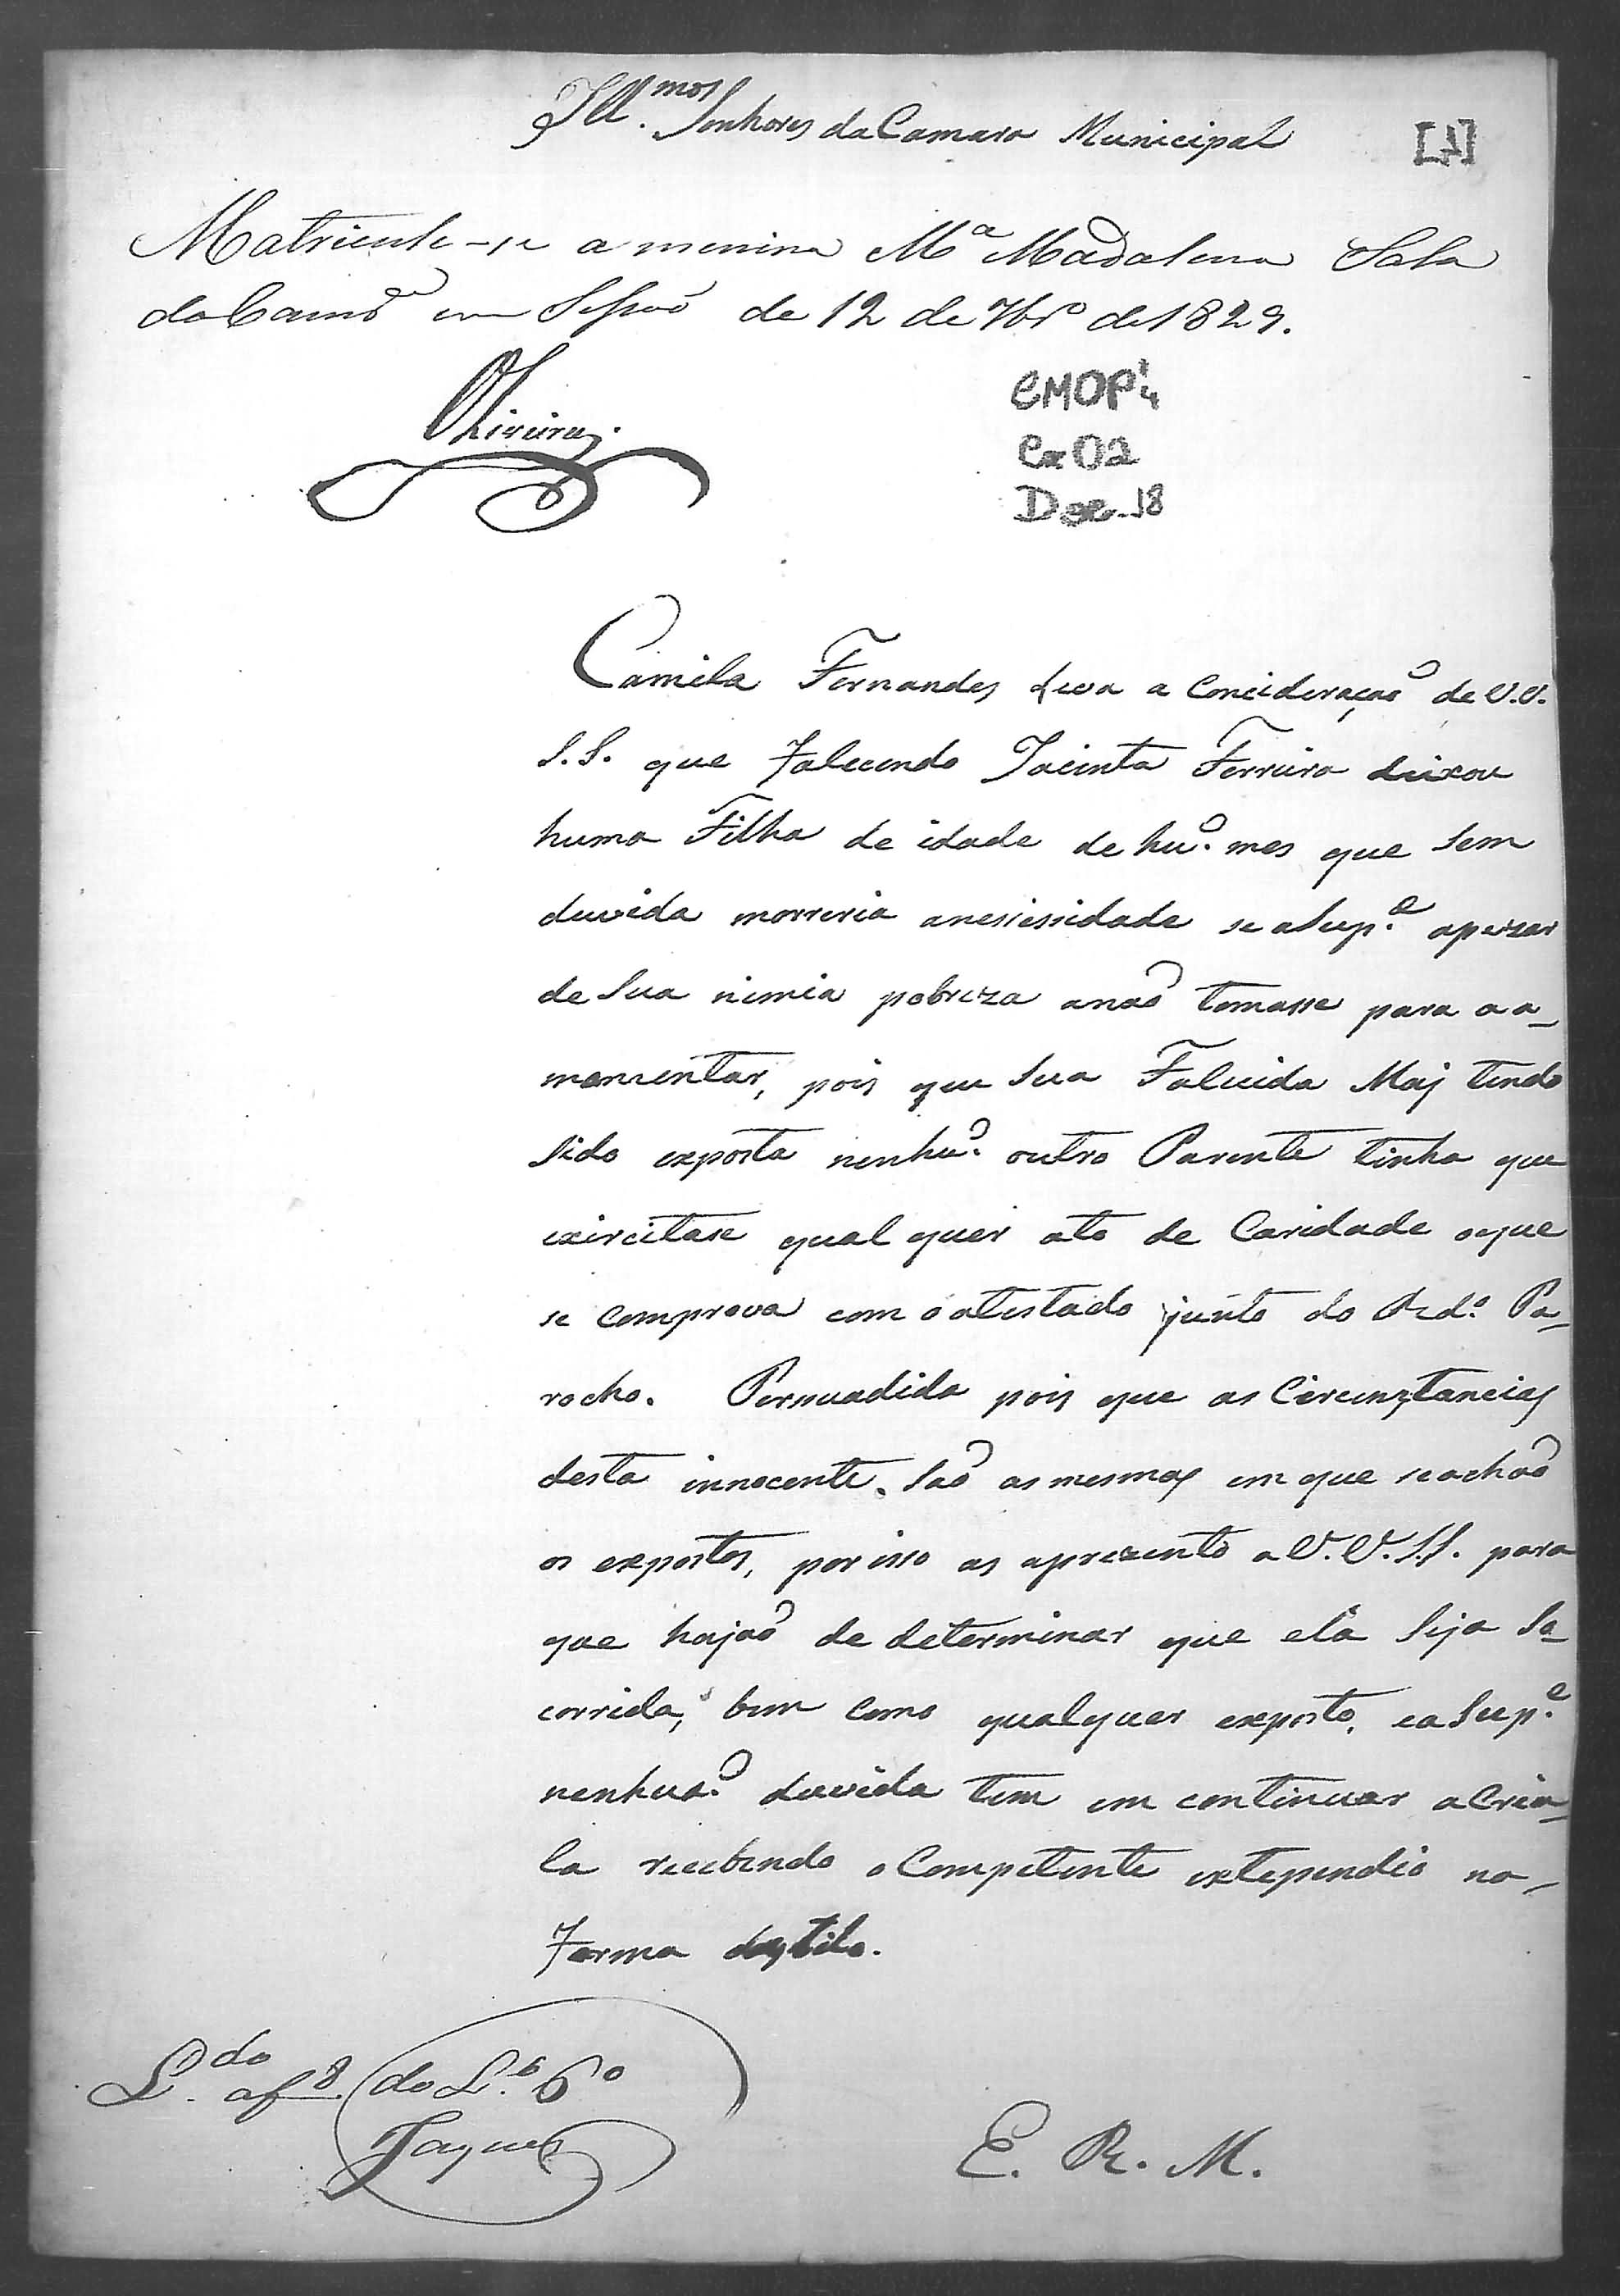 Ill.mos Senhores da Camara Municipal
[1]
Matricule-se a menina Ma Madalena Sala
da Camara em Sessaõ de 12 de 7bro de 1829.
Oliveira
CMOP 4
Cx 02
Doc. 18
Camila Fernandes leva a Concideraçaõ de V.V.
S.S. que Falecendo Jacinta Ferreira deixou
huma Filha de idade de hũ mes que sem
duvida morreria anessessidade se aSup.e apezar
de Sua nimia pobreza anaõ tomasse para aa-
mamentar, pois que Sua Falecida Maj tendo
Sido exposta nenhũ outro Parente tinha que
exircitase qual quer ato de Caridade oque
se comprova com o atestado junto do Rdo. Pa-
rocho. Persuadida pois que as Circunstancias
desta innocente, Saõ as mesmas em que seachaõ
os expostos, por isso as aprezento a V.V.S.S. para
que hajaõ de determinar que ela Seja So-
corrida, bem como qualquer exposto, eaSup.e
nenhuã duvida tem em continuar aCria-
la recebendo oCompetente estependio na-
Forma destilo.
L.do af 8. do L.o 6o
Jaques
E. R. M.